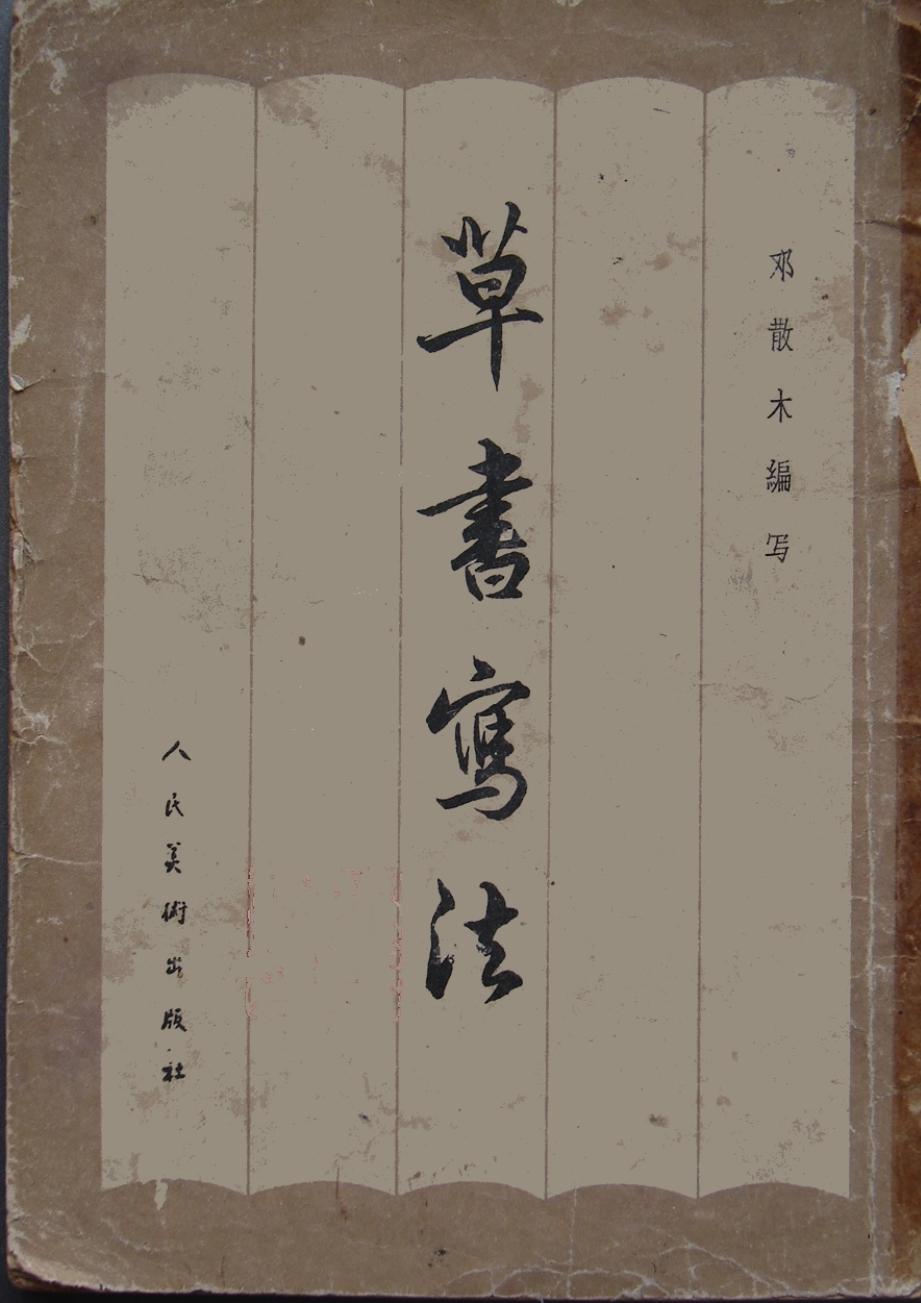 邓散木編写
草書寫法
人民美術出版社